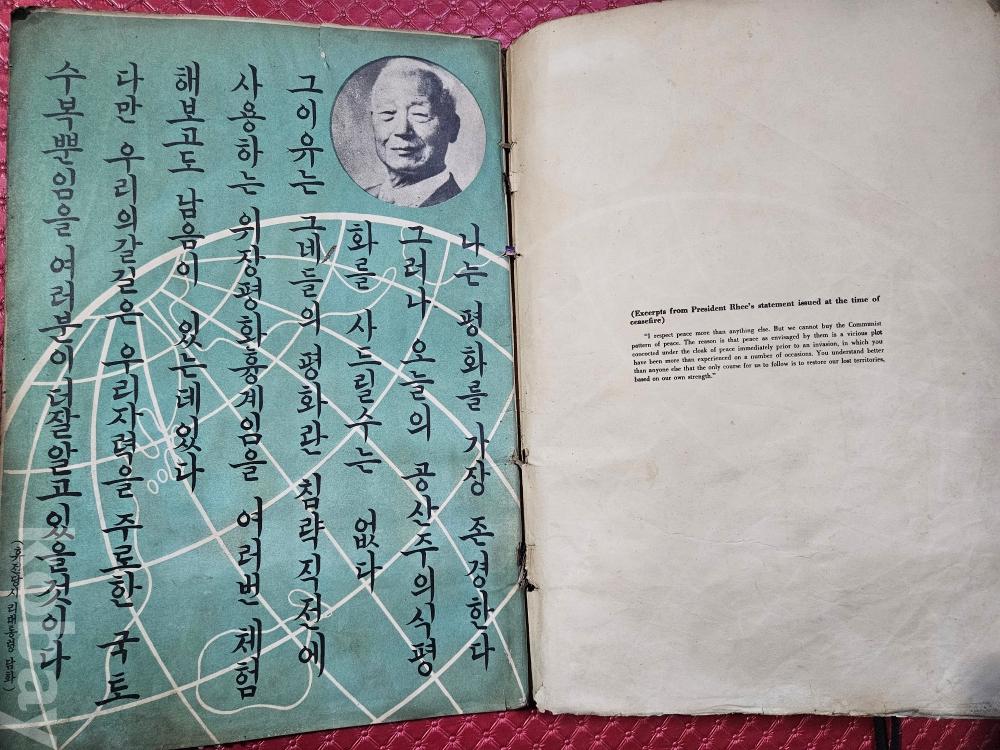 나는 평화를 가장 존경한다
그러나 오늘의 공산주의식 평
화를 사드릴수는 없다
그이유는 그네들의 평화관 침략직전에
사용하는 위장평화흉계임을 여러번 체험
해보고도 남음이 있는데있다
다만 우리의갈길은 우리자력을 주로한 국토
수복뿐임을 여러분이더잘알고있을것이다
(휴전당시 리대통령 담화)
kobay
(Excerpts from President Rhee's statement issued at the time of
ceasefire)
"I respect peace more than anything else. But we cannot buy the Communist
pattern of peace. The reason is that peace as envisaged by them is a vicious plot
concocted under the cloak of peace immediately prior to an invasion, in which you
have been more than experienced on a number of occasions. You understand better
than anyone else that the only course for us to follow is to restore our lost territories,
based on our own strength."